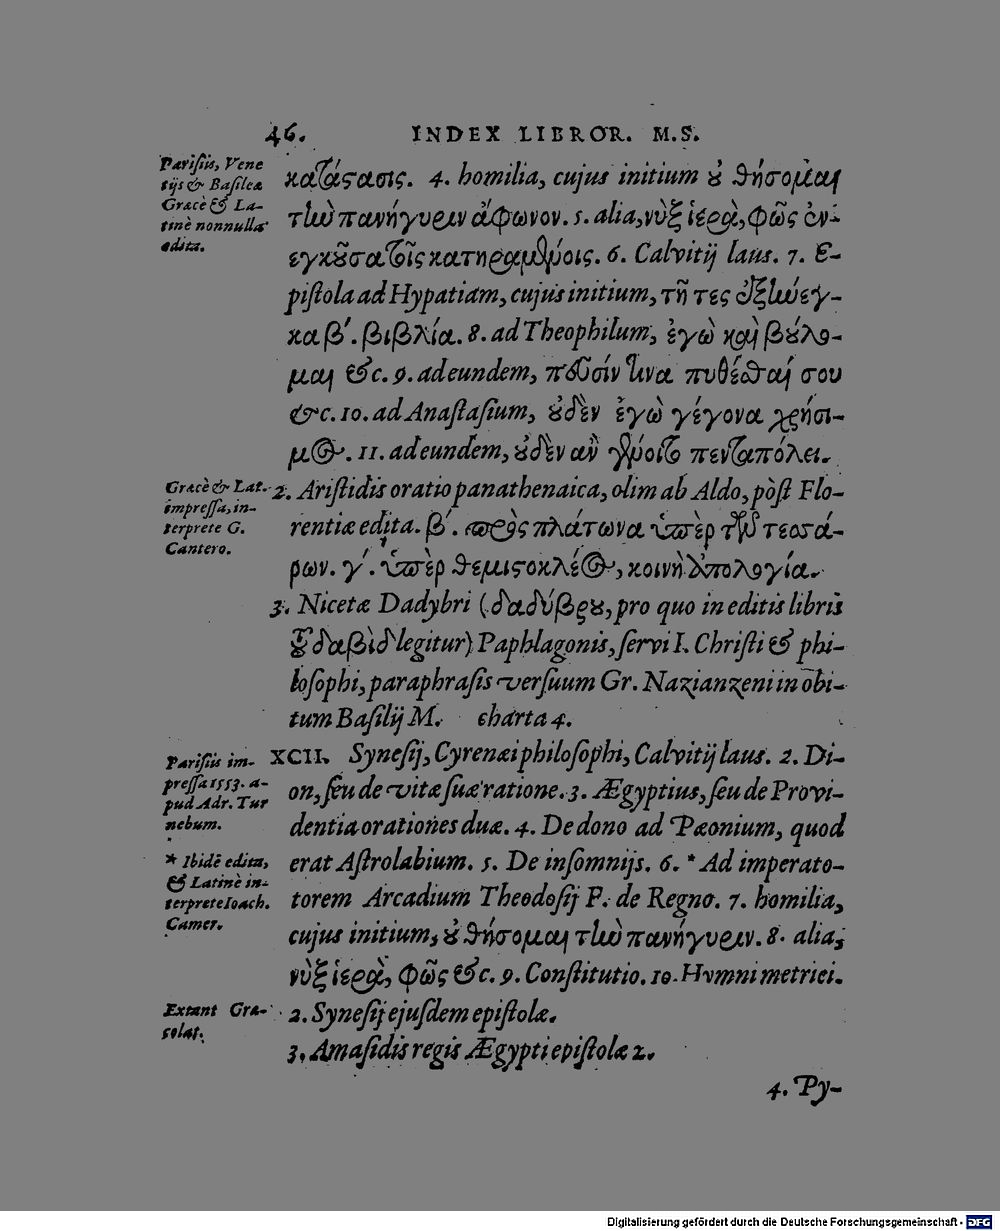 46. INDEX LIBROR. M.S.
Parisiis, Vene
tijs & Basileæ
Græcè & La-
tinè nonnulla
edita.
κατάστασις. 4. homilia, cujus initium ȣ θήσομαι
τὴν πανήγυριν ἄφωνον. 5. alia, νὺξ ἱερὰ, φῶς ἐν-
εγκȣσα τοῖς κατηραμένοις. 6. Calvitij laus. 7. E-
pistola ad Hypatiam, cujus initium, τῆ τες ἐξήνεγ-
κα β´. βιβλία. 8. ad Theophilum, ἐγὼ καὶ βȣλο-
μαι &c. 9. ad eundem, πȣσίν τινα πυθέσθαι σου
&c. 10. ad Anastasium, ȣδὲν ἐγὼ γέγονα χρήσι-
μος. 11. ad eundem, ȣδὲν ἂν γένοιτο πενταπόλει.
Græcè & Lat.
impressa, in-
terprete G.
Cantero.
2. Aristidis oratio panathenaica, olim ab Aldo, pòst Flo-
rentiæ edita. β´. πρὸς πλάτωνα ὑπὲρ τῶν τεσσά-
ρων. γ´. ὑπὲρ θεμιστοκλέος, κοινὴ ἀπολογία.
3. Nicetæ Dadybri (δαδύβρȣ, pro quo in editis libris
τȣ δαβὶδ legitur) Paphlagonis, servi I. Christi & phi-
losophi, paraphrasis versuum Gr. Nazianzeni in obi-
tum Basilij M. charta 4.
Parisiis im-
pressa 1553. a-
pud Adr. Tur
nebum.
* Ibidē edita,
& Latinè in-
terprete Ioach.
Camer.
XCII. Synesij, Cyrenæi philosophi, Calvitij laus. 2. Di-
on, seu de vitæ suæ ratione. 3. Ægyptius, seu de Provi-
dentia orationes duæ. 4. De dono ad Pæonium, quod
erat Astrolabium. 5. De insomnijs. 6. * Ad imperato-
torem Arcadium Theodosij F. de Regno. 7. homilia,
cujus initium, ȣ θήσομαι τὴν πανήγυριν. 8. alia,
νὺξ ἱερὰ, φῶς &c. 9. Constitutio. 10. Hymni metrici.
Extant Græ-
colat.
2. Synesij ejusdem epistolæ.
3. Amasidis regis Ægypti epistolæ 2.
4. Py-
Digitalisierung gefördert durch die Deutsche Forschungsgemeinschaft - DFG